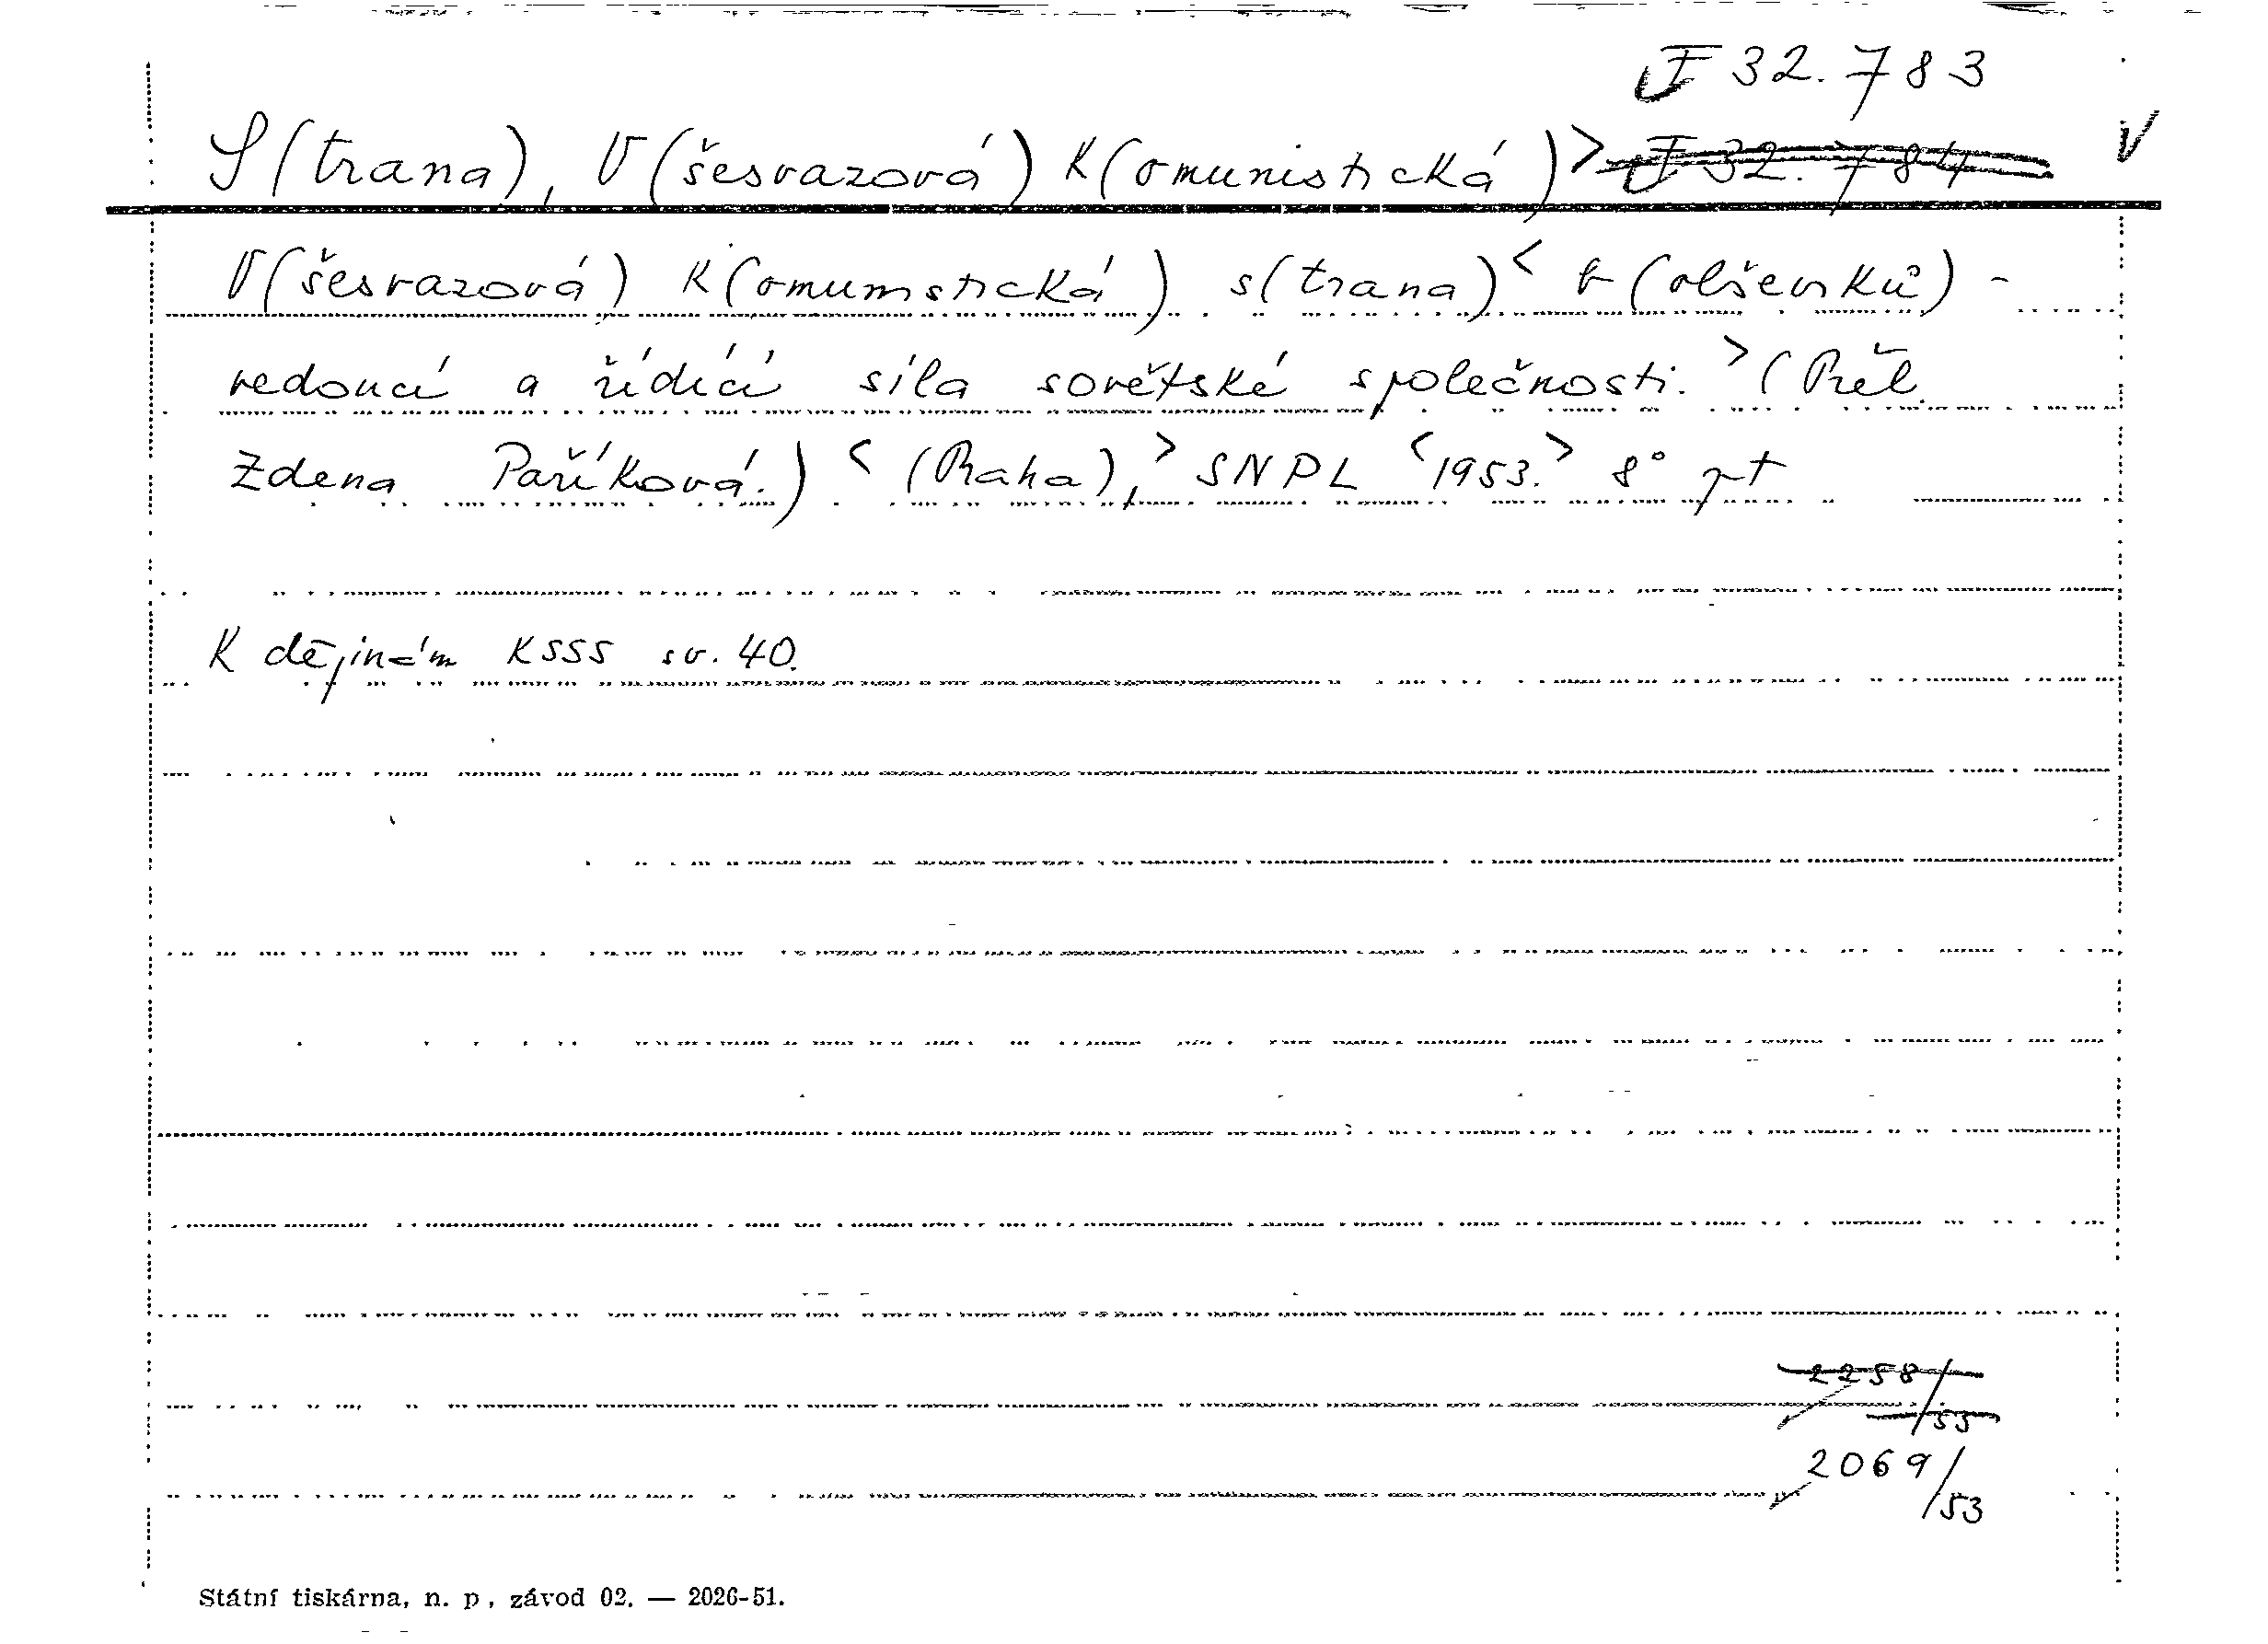 F 32.783
S(trana), V(šesvazová) K(omunistická)> F 32.784
V
V(šesvazová) K(omunistická) s(trana)< b(olševiků) -
vedoucí a řídící síla sovětské společnosti.> (Přel.
Zdena Paříková.) < (Praha),> SNPL <1953.> 8°
K dějinám KSSS sv. 40.
2258/53
2069/53
Státní tiskárna, n. p., závod 02. — 2026-51.